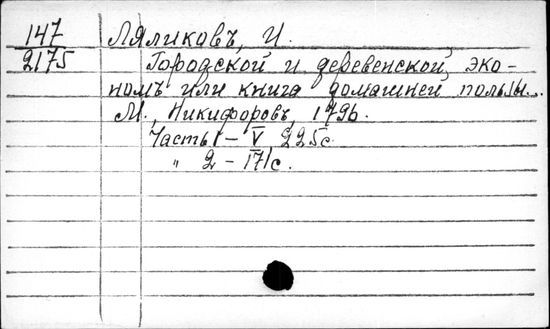 147 Ляликовъ, И.
2175 Городской и деревенской эко-
номъ или книга домашней пользы...
М., Никифоровъ, 1796.
Часть 1 – V 225с.
" 2 – 171с.